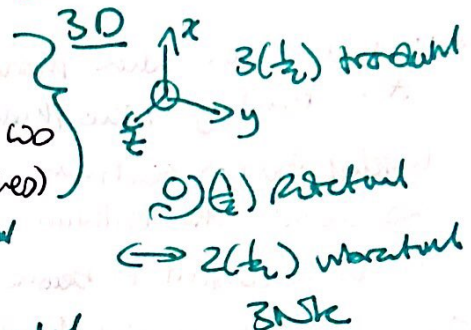 3D
x
y
z
3(½) translational
wo
(½) Rotational
2(½) vibrational
3Nk